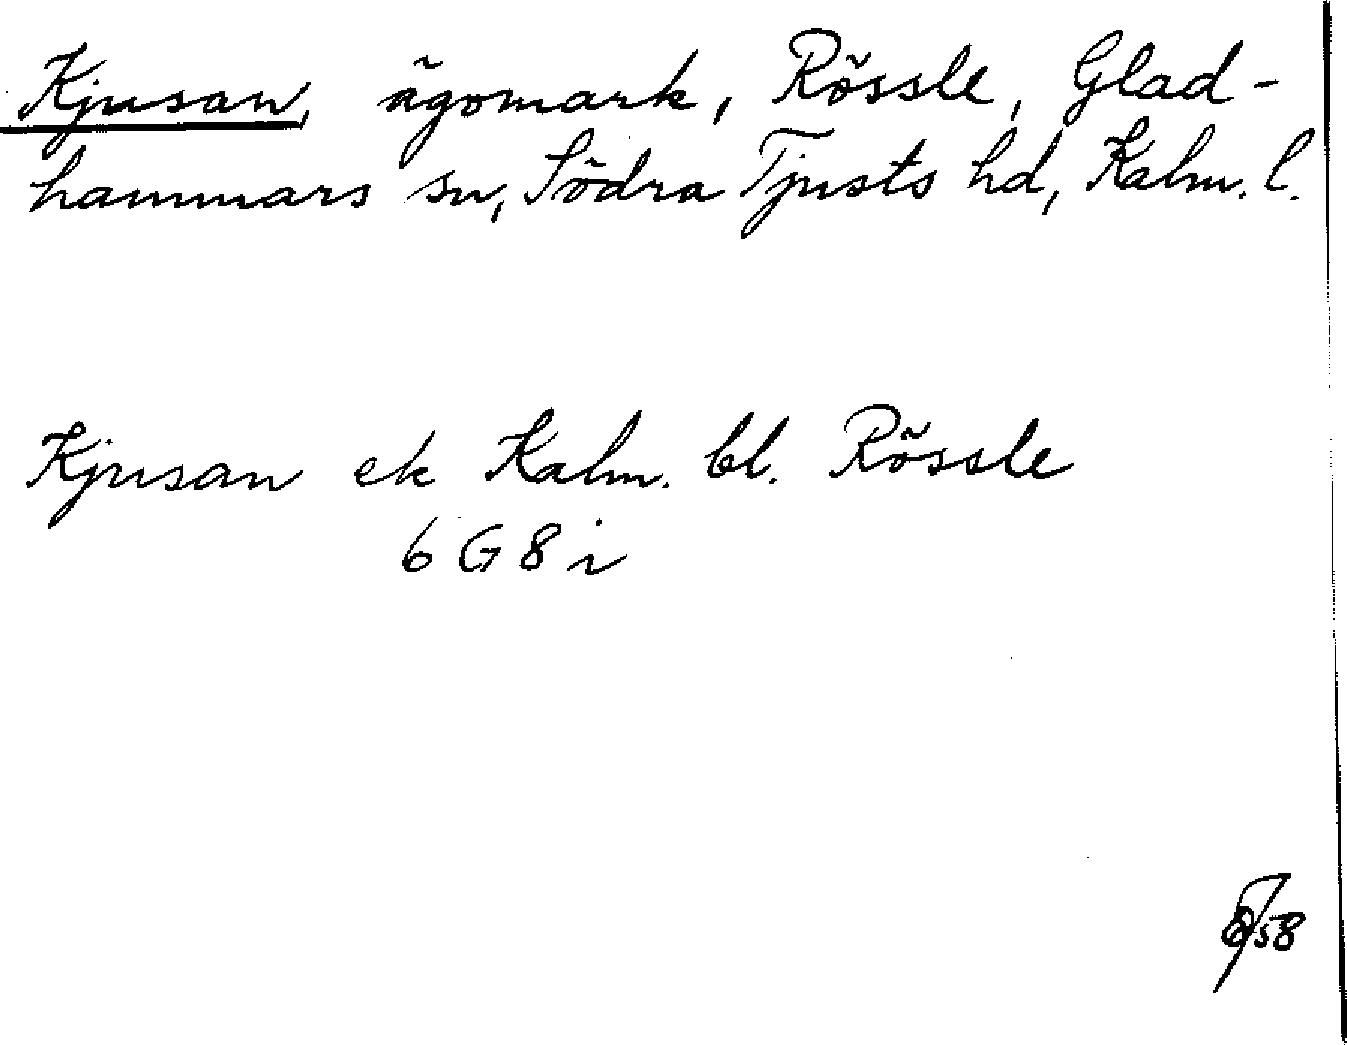 Kjusan, ägomark, Rössle, Glad-
hammars sn, Södra Tjusts hd, Kalm. l.
Kjusan ek Kalm. bl. Rössle
6 G 8 i